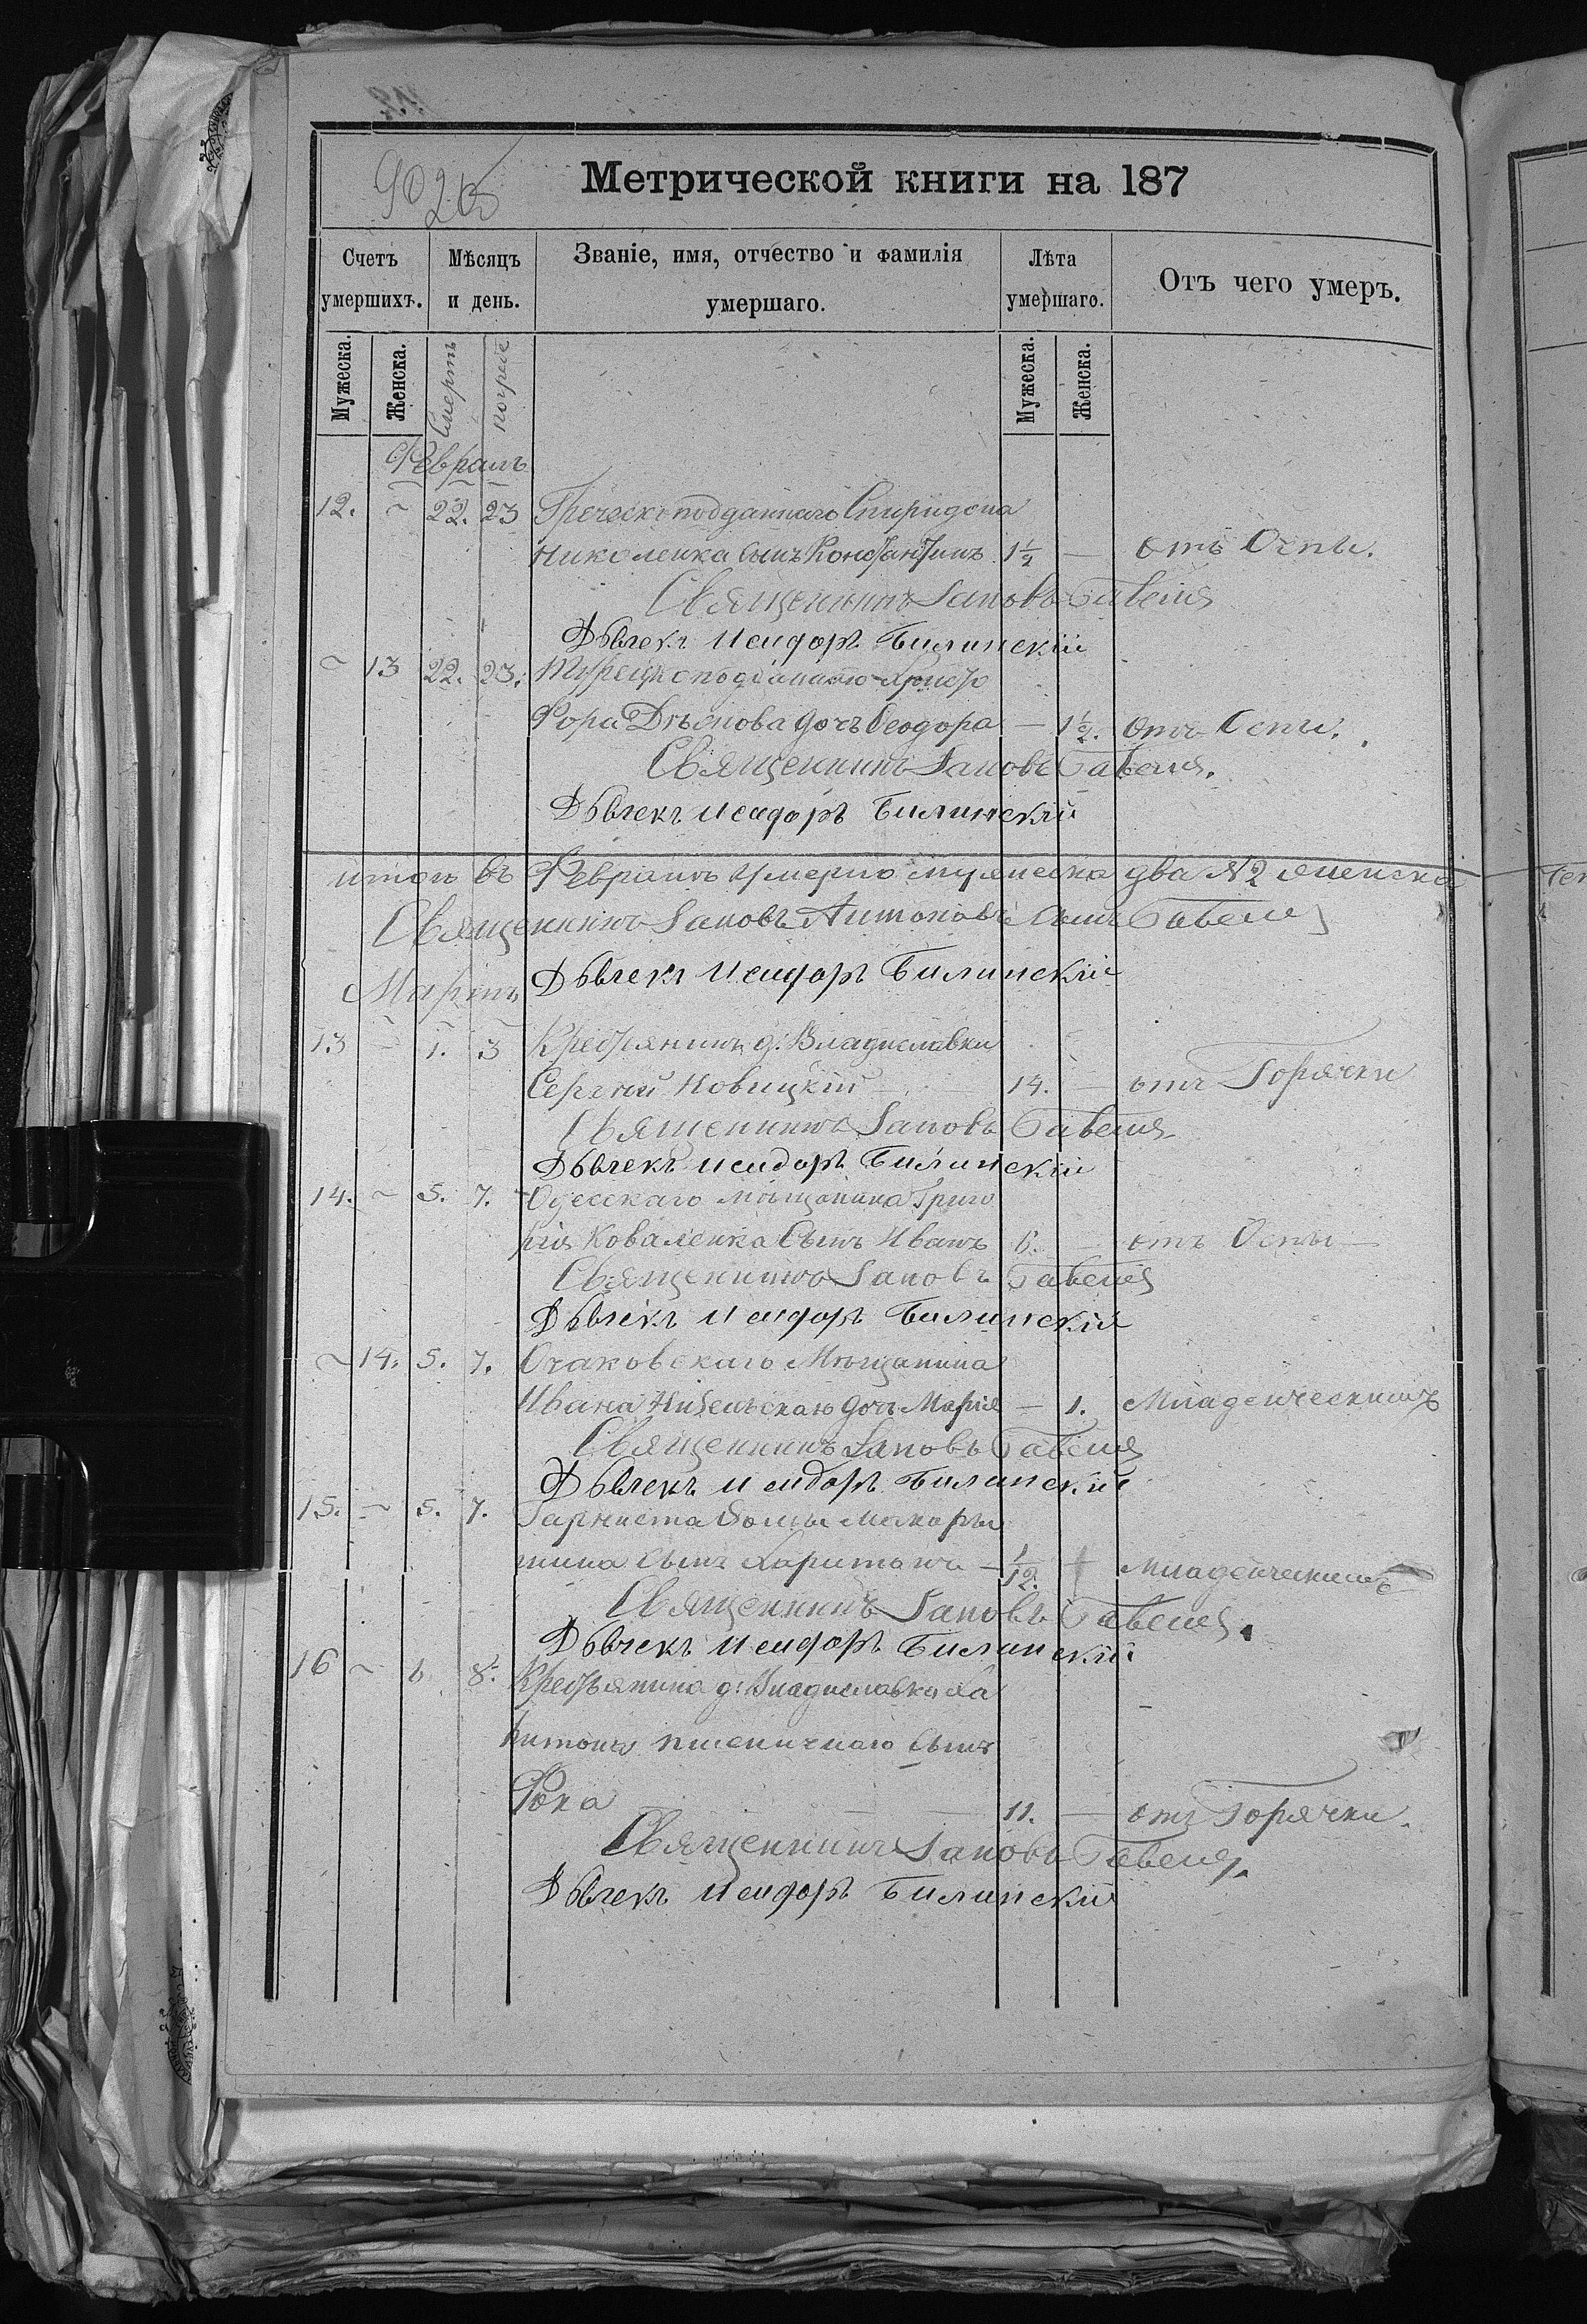 Метрической книги на 187
Счетъ умершихъ.
Мѣсяцъ и день.
Званіе, имя, отчество и фамилія умершаго.
Лѣта умершаго.
Отъ чего умеръ.
Мужеска. Женска. Смерть погреб Мужеска. Женска.
Февраль
12. ~ 22. 23 Греческоподданнаго Спиридона
Николенка сынъ Константинъ 1½ — отъ Оспы.
Священникъ Іаковъ Гавеля
Дьячекъ Исидоръ Билинскій
~ 13 22. 23. Турецкоподданнаго Христо
фора дочь Феодора — 1½. Отъ Оспы.
Священникъ Іаковъ Гавеля.
Дьячекъ Исидоръ Билинскій
итогъ въ Февралѣ умерло мужеска два № 2 женска
Священникъ Іаковъ Антоновъ сынъ Гавеля
Дьячекъ Исидоръ Билинскій
Мартъ
13 — 1. 3 Крестьянинъ д. Владиславки
Сергѣй Новицкій 14. — отъ Горячки
Священникъ Іаковъ Гавеля
Дьячекъ Исидоръ Билинскій
14. ~ 5. 7. Одесскаго мѣщанина Григо
рія Коваленка Сынъ Иванъ 6. — отъ Оспы
Священникъ Іаковъ Гавеля
Дьячекъ Исидоръ Билинскій
~ 14. 5. 7. Очаковскаго Мѣщанина
Ивана дочь Марія — 1. Младенческимъ
Священникъ Іаковъ Гавеля
Дьячекъ Исидоръ Билинскій
15. ~ 5. 7. Фомы
сынъ Харитонъ — 1/12. Младенческимъ
Священникъ Іаковъ Гавеля.
Дьячекъ Исидоръ Билинскій
16 ~ 6 8. Крестьянина д. Владиславки Ха
ритона Пшеничнаго сынъ
Фока 11. — отъ Горячки.
Священникъ Іаковъ Гавеля.
Дьячекъ Исидоръ Билинскій